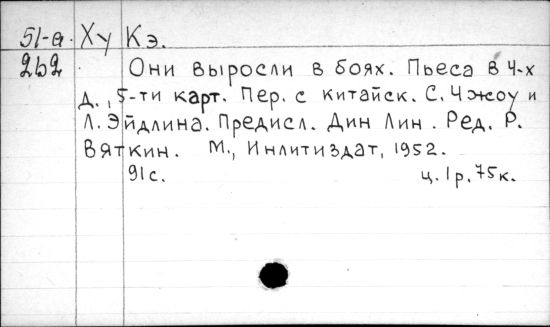 51-а. Ху Кэ.
2б2 Они выросли в боях. Пьеса в 4-х
д., 5-ти карт. Пер. с китайск. С. Чжоу и
Л. Эйдлина. Предисл. Дин Лин. Ред. Р.
Вяткин. М., Инлитиздат, 1952.
91с. ц. 1р. 75к.